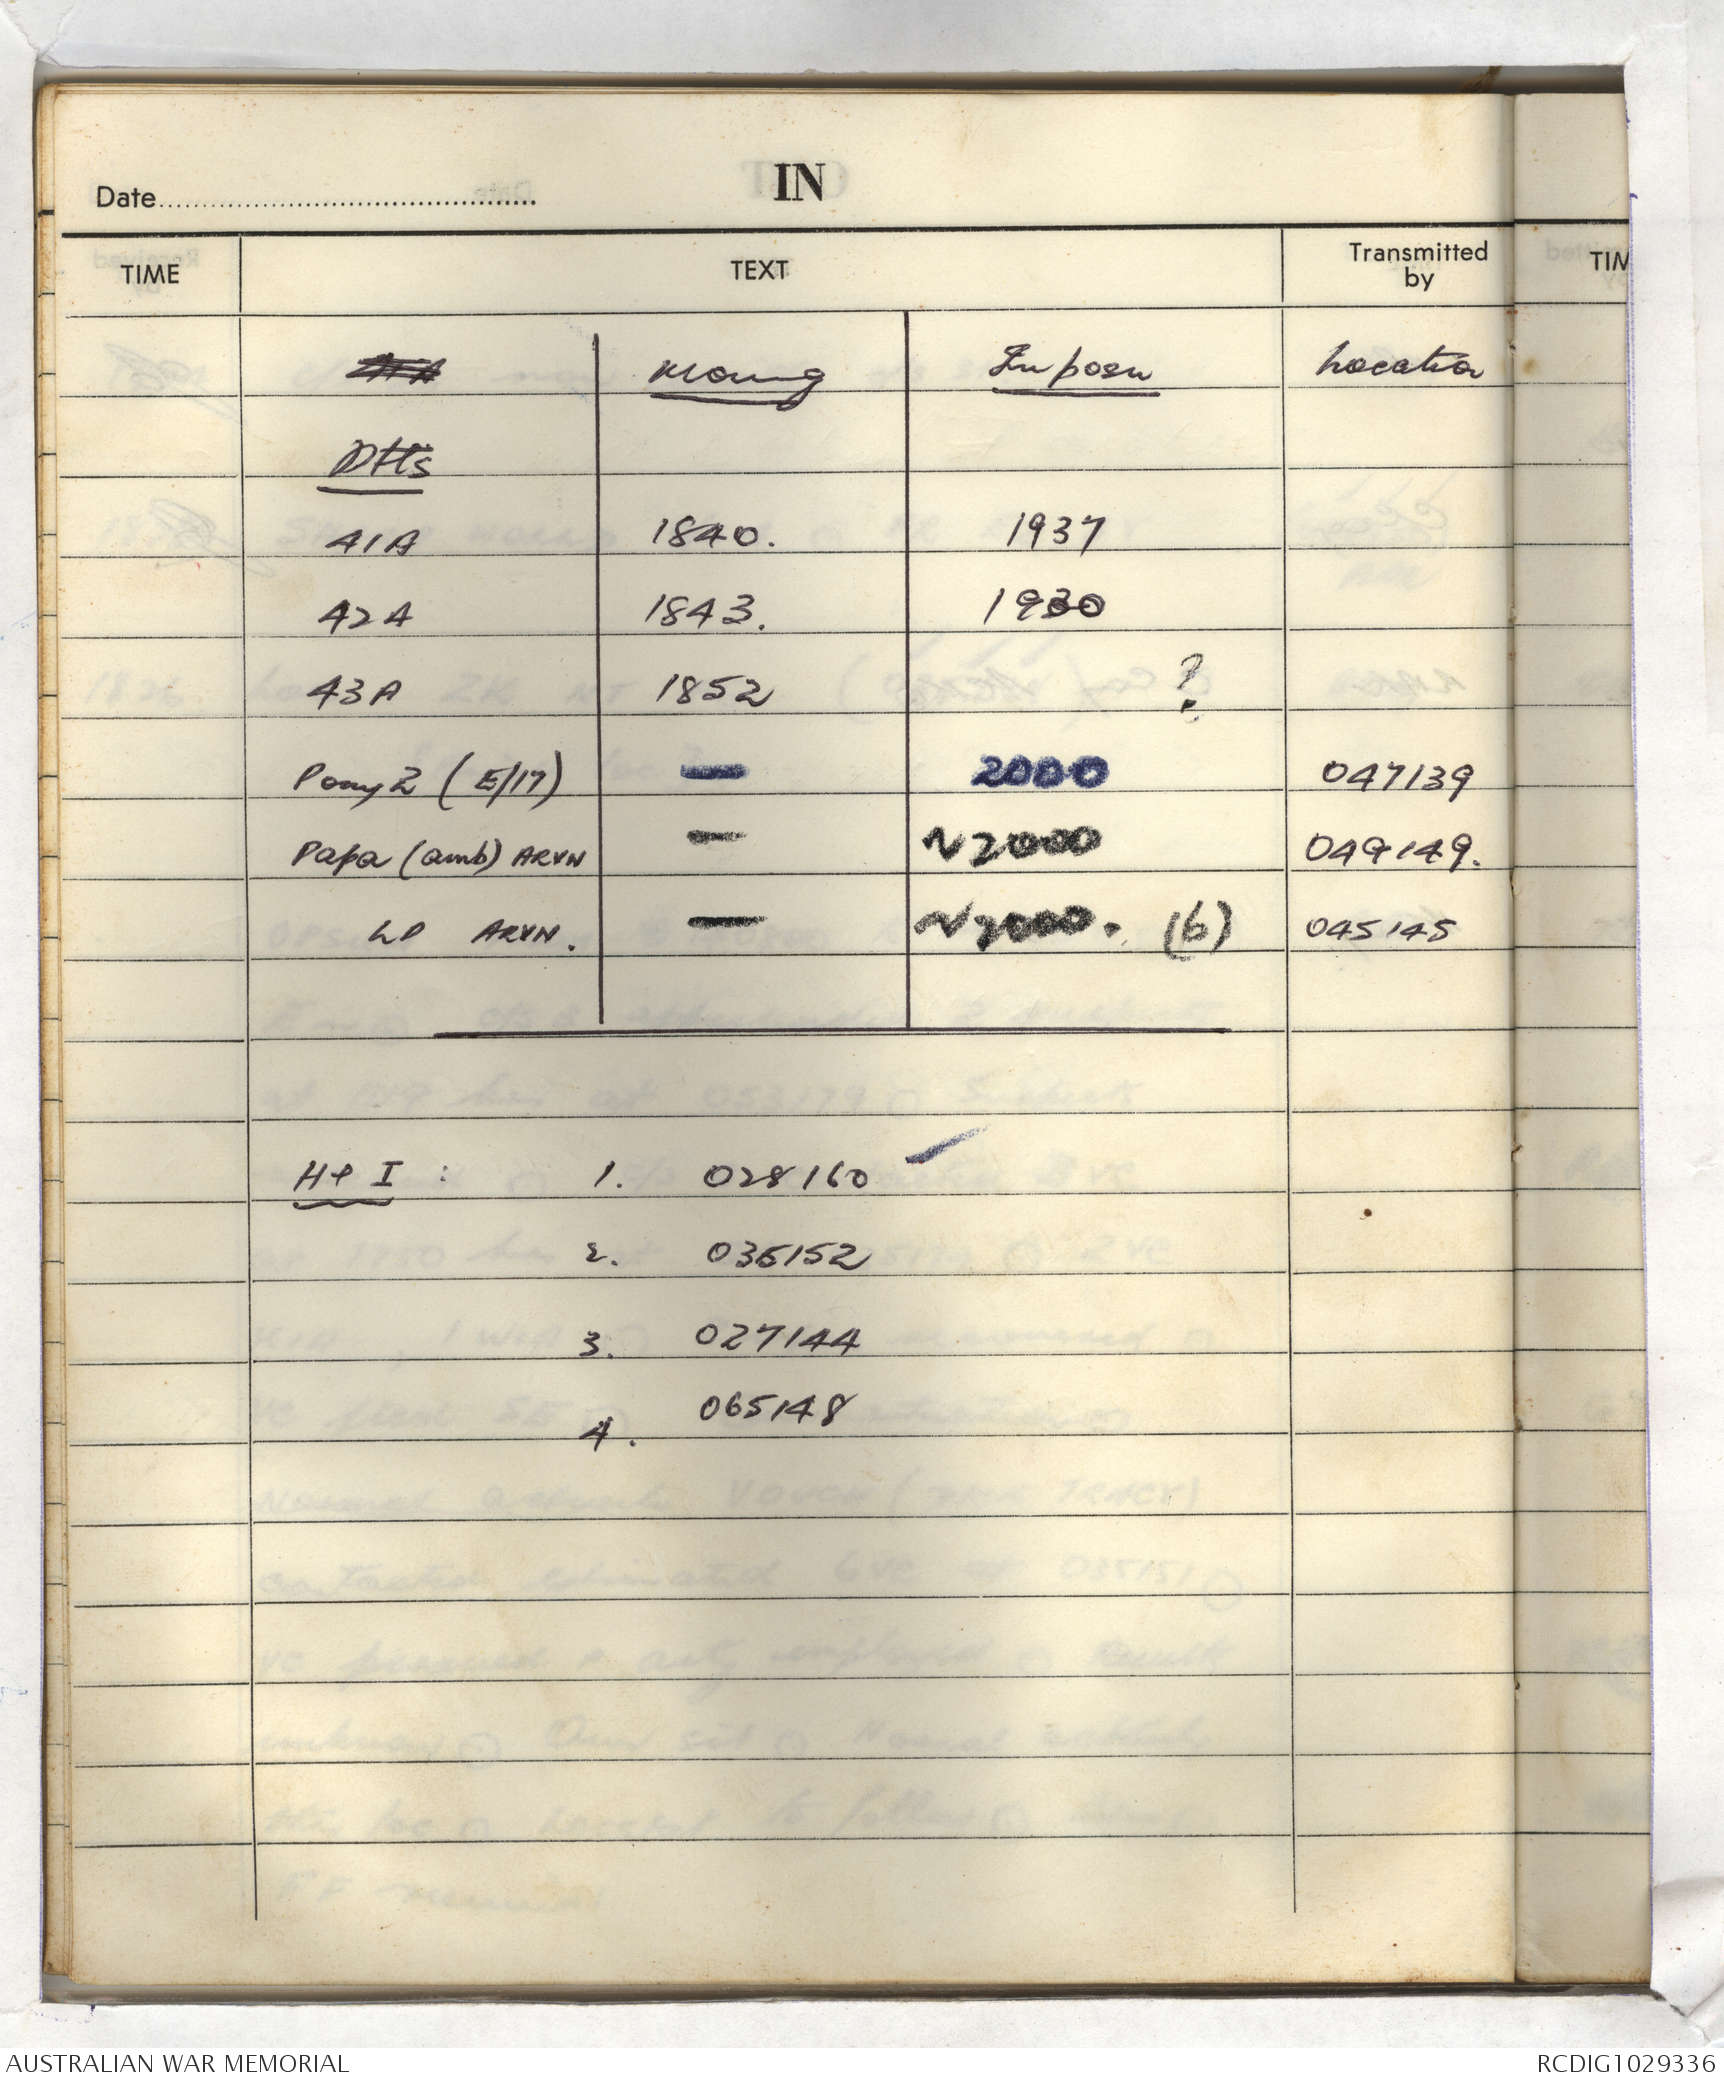 IN
Date
TIME TEXT Transmitted by TIM
Moving In posn Location
41A 1840. 1937
42A 1843. 1930
43A 1852 ?
Pony 2 (E/17) — 2000 047139
Papa (amb) ARVN — ~2000 049149.
LP ARVN. — ~2000. (6) 045145
H + I : 1. 028160
2. 036152
3. 027144
4. 065148
AUSTRALIAN WAR MEMORIAL RCDIG1029336